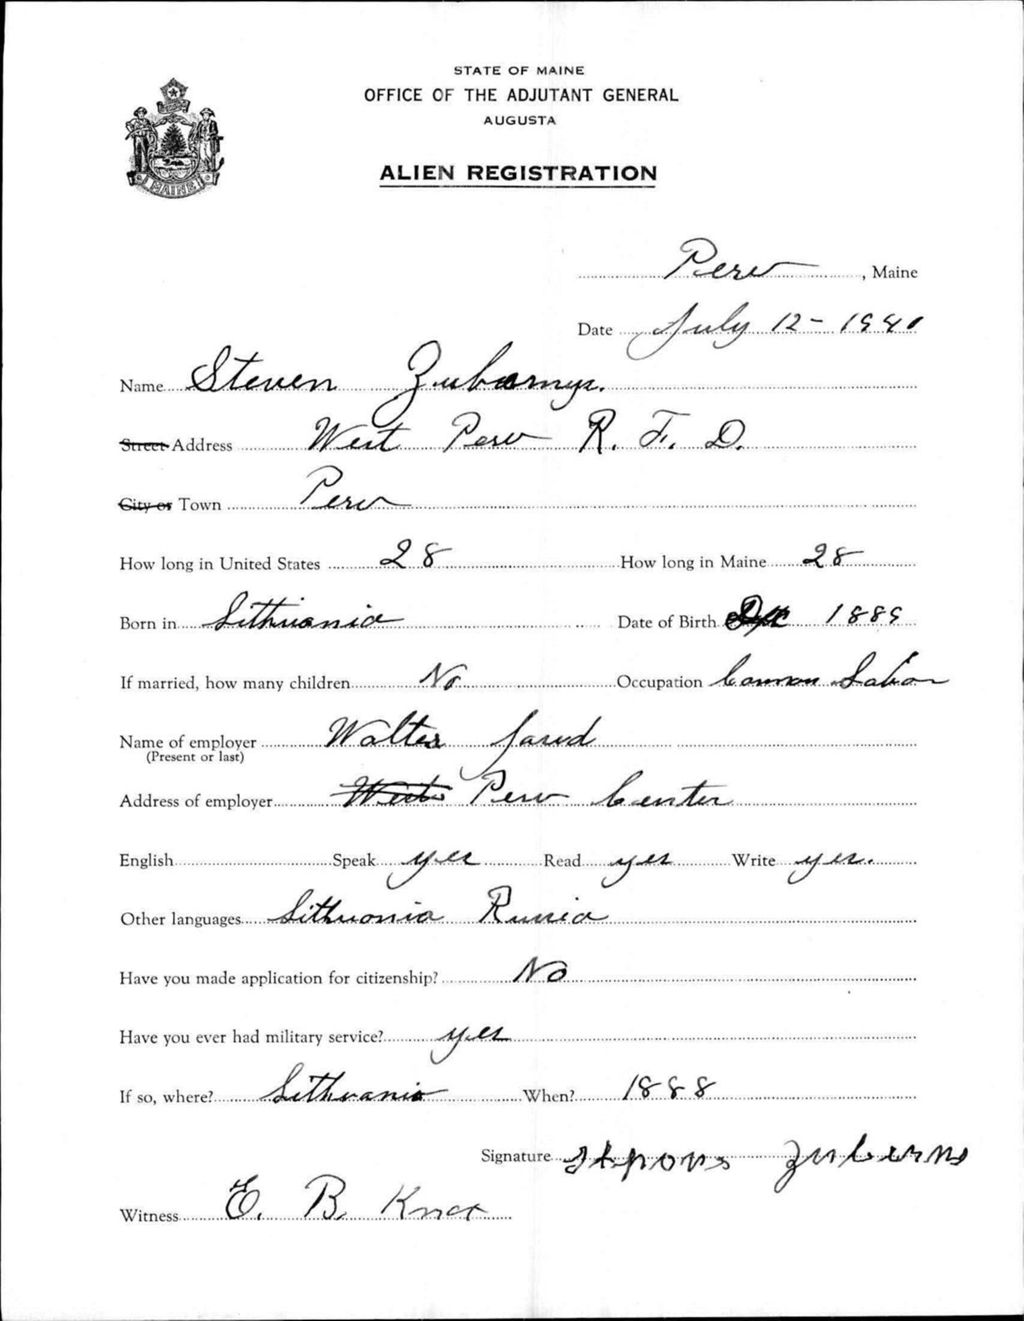 STATE OF MAINE
OFFICE OF THE ADJUTANT GENERAL
AUGUSTA
ALIEN REGISTRATION
MAINE
Peru, Maine
Date July 12 - 1940
Name Steven
Street Address West Peru R. F. D.
City or Town Peru
How long in United States 28 How long in Maine 28
Born in Lithuania Date of Birth 1889
If married, how many children No Occupation Common Labor
Name of employer Walter
(Present or last)
Address of employer West Peru Center
English Speak yes Read yes Write yes.
Other languages Lithuania Russia
Have you made application for citizenship? No
Have you ever had military service? yes
If so, where? Lithuania When? 1888
Signature
Witness E. B. Knox